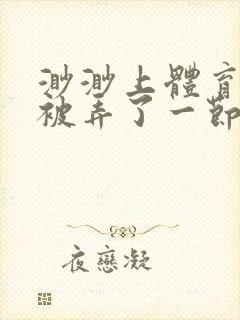 渺渺上體育
被弄了一節
夜戀凝